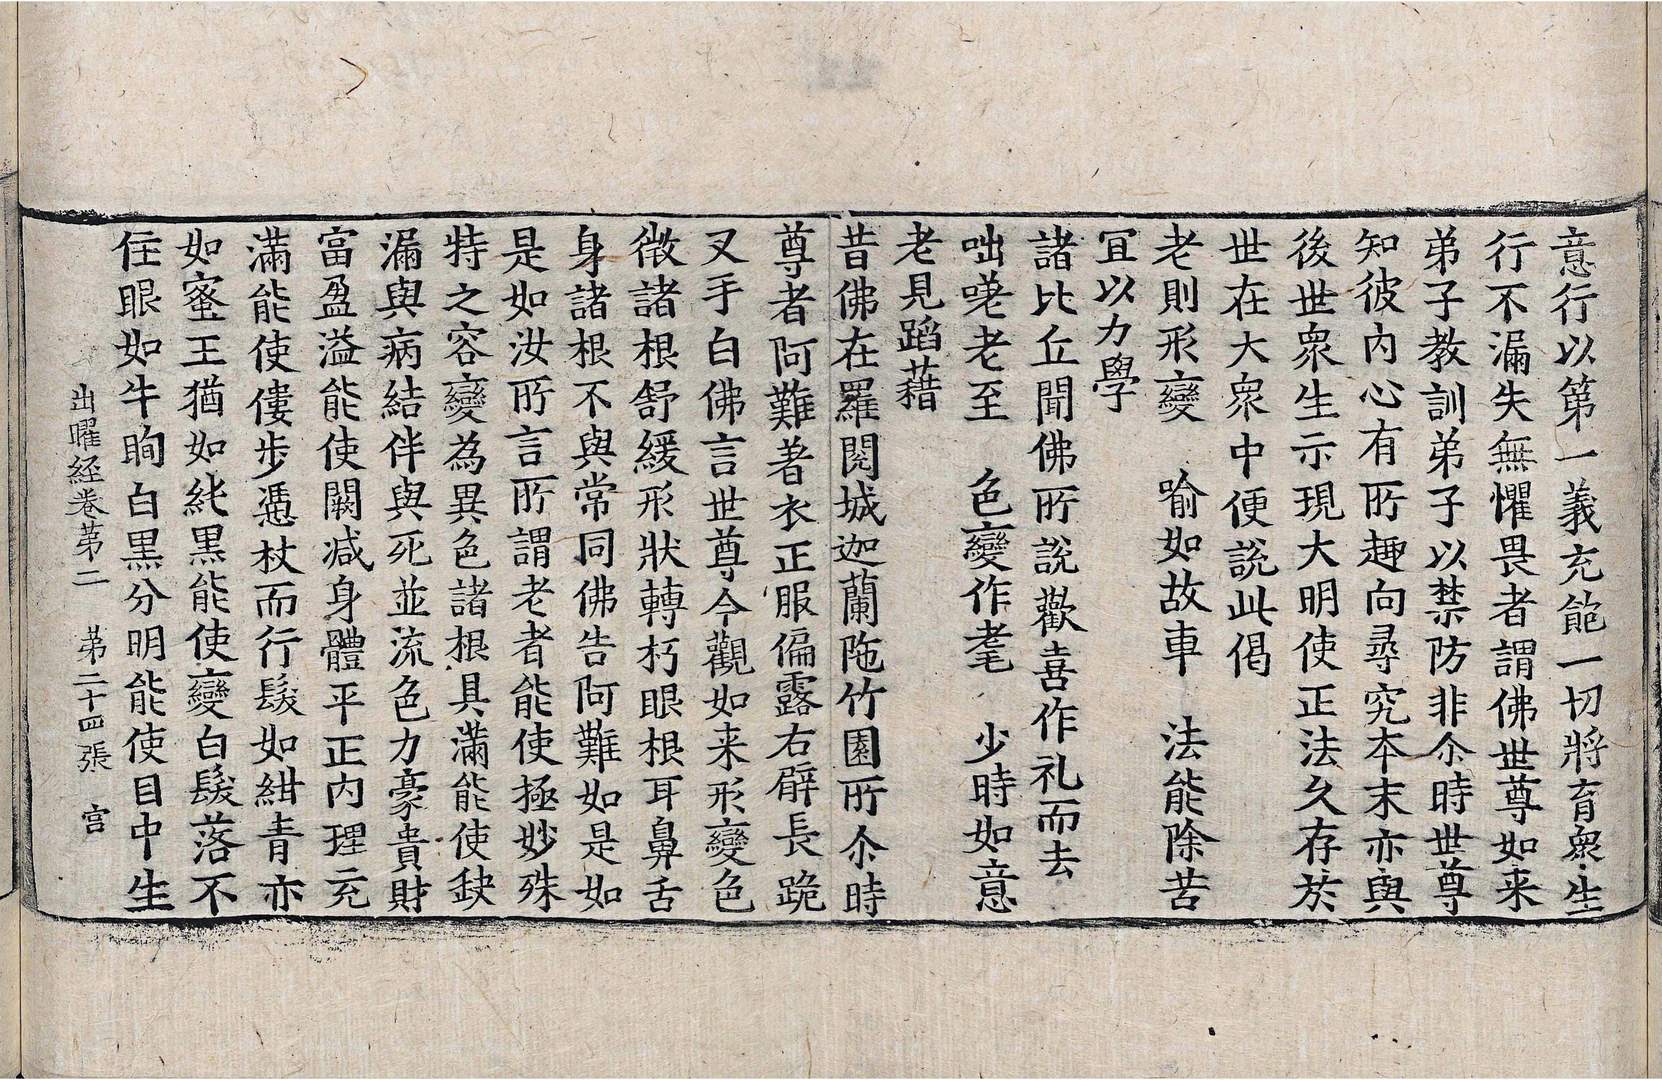 意行以第一義充飽一切將育衆生
行不漏失無懼畏者謂佛世尊如来
弟子教訓弟子以禁防非尒時世尊
知彼内心有所趣向尋究本末亦與
後世衆生示現大明使正法久存於
世在大衆中便說此偈
老則形變　喻如故車　法能除苦
冝以力學
諸比丘聞佛所說歡喜作礼而去
咄嗟老至　色變作耄　少時如意
老見蹈藉
昔佛在羅閱城迦蘭陁竹園所尒時
尊者阿難著衣正服偏露右臂長跪
叉手白佛言世尊今觀如来形變色
徵諸根舒緩形狀轉朽眼根耳鼻舌
身諸根不與常同佛告阿難如是如
是如汝所言所謂老者能使極妙殊
特之容變為異色諸根具滿能使缺
漏與病結伴與死並流色力豪貴財
富盈溢能使闕减身體平正内理充
滿能使僂步憑杖而行髮如紺青亦
如蜜王猶如純黒能使變白髮落不
住眼如牛眴白黒分明能使目中生
出曜経卷第二　第二十四張　官